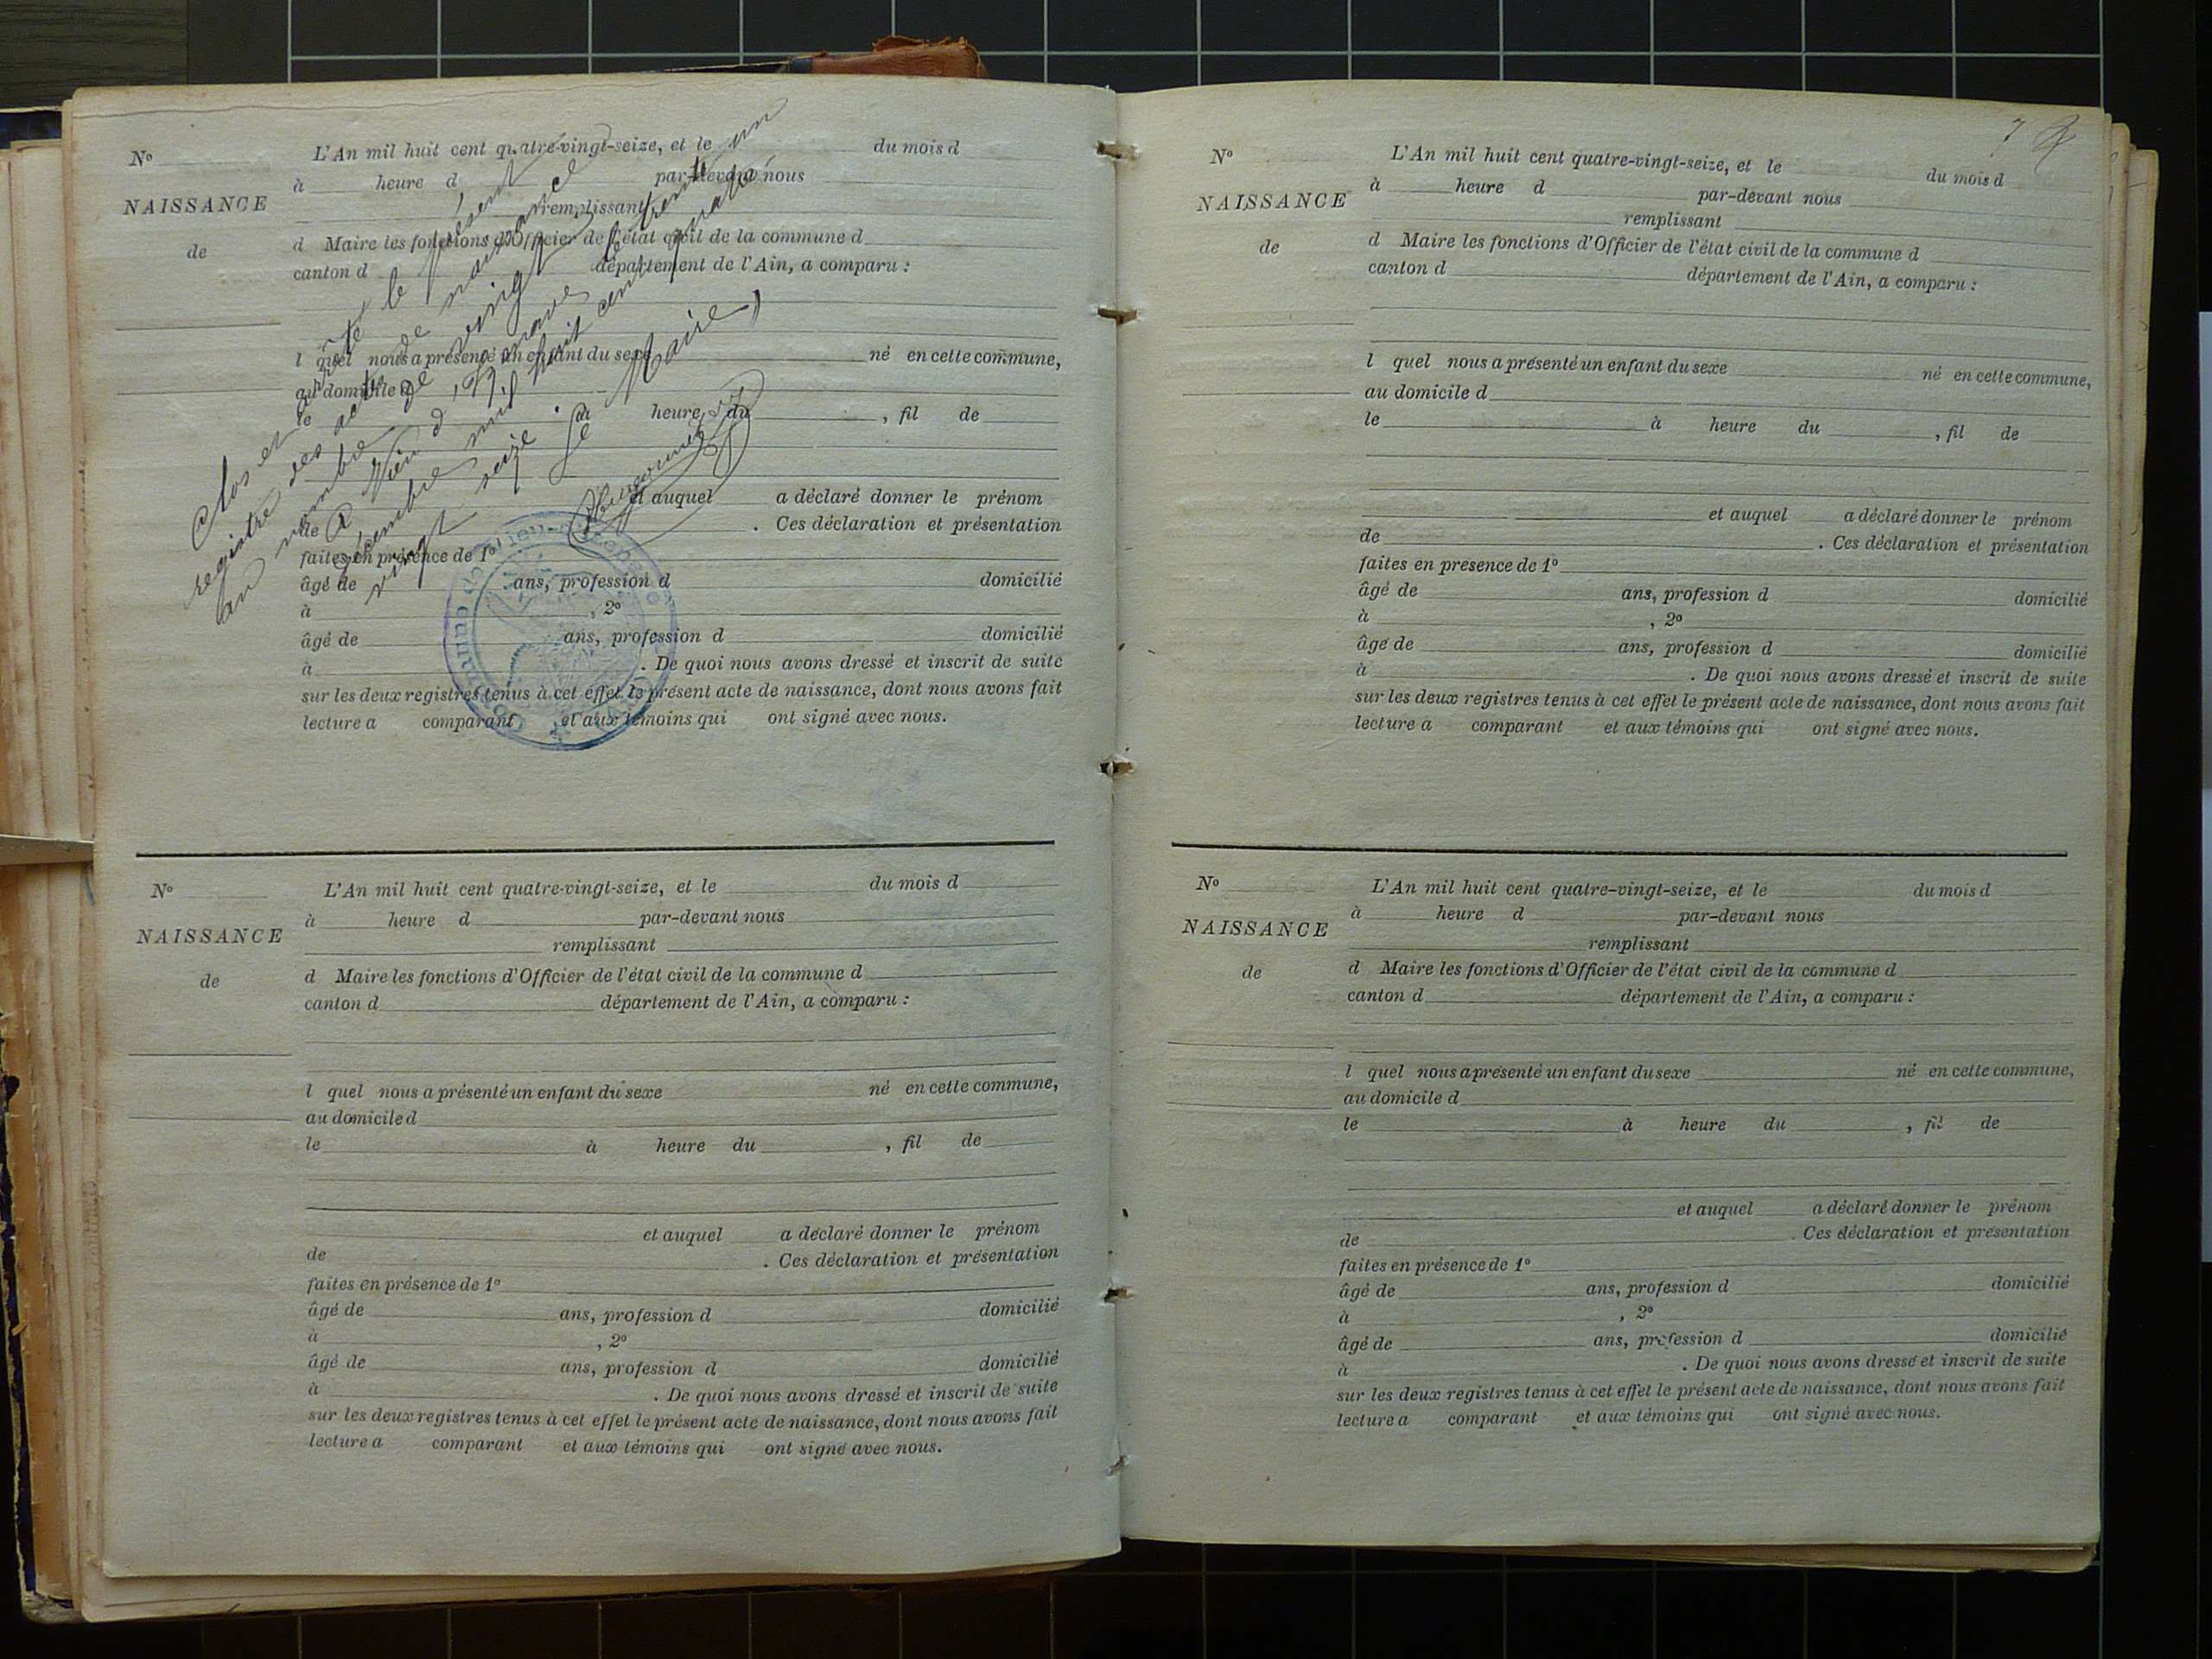 N°
NAISSANCE
de
L'An mil huit cent quatre-vingt-seize, et le du mois d
à heure d par-devant nous
remplissant
d Maire les fonctions d'Officier de l'état civil de la commune d
canton d département de l'Ain, a comparu :
l quel nous a présenté un enfant du sexe né en cette commune,
au domicile d
le à heure du , fil de
et auquel a déclaré donner le prénom
de . Ces déclaration et présentation
faites en présence de 1°
âgé de ans, profession d domicilié
à , 2°
âgé de ans, profession d domicilié
à . De quoi nous avons dressé et inscrit de suite
sur les deux registres tenus à cet effet le présent acte de naissance, dont nous avons fait
lecture a comparant et aux témoins qui ont signé avec nous.
Clos et arrêté le présent
registre des actes de naissance
au nombre de vingt
A Vieu d'Izenave le trente un
décembre mil huit cent quatre
vingt seize. Le Maire,
N°
NAISSANCE
de
L'An mil huit cent quatre-vingt-seize, et le du mois d
à heure d par-devant nous
remplissant
d Maire les fonctions d'Officier de l'état civil de la commune d
canton d département de l'Ain, a comparu :
l quel nous a présenté un enfant du sexe né en cette commune,
au domicile d
le à heure du , fil de
et auquel a déclaré donner le prénom
de . Ces déclaration et présentation
faites en présence de 1°
âgé de ans, profession d domicilié
à , 2°
âgé de ans, profession d domicilié
à . De quoi nous avons dressé et inscrit de suite
sur les deux registres tenus à cet effet le présent acte de naissance, dont nous avons fait
lecture a comparant et aux témoins qui ont signé avec nous.
7
N°
NAISSANCE
de
L'An mil huit cent quatre-vingt-seize, et le du mois d
à heure d par-devant nous
remplissant
d Maire les fonctions d'Officier de l'état civil de la commune d
canton d département de l'Ain, a comparu :
l quel nous a présenté un enfant du sexe né en cette commune,
au domicile d
le à heure du , fil de
et auquel a déclaré donner le prénom
de . Ces déclaration et présentation
faites en présence de 1°
âgé de ans, profession d domicilié
à , 2°
âgé de ans, profession d domicilié
à . De quoi nous avons dressé et inscrit de suite
sur les deux registres tenus à cet effet le présent acte de naissance, dont nous avons fait
lecture a comparant et aux témoins qui ont signé avec nous.
N°
NAISSANCE
de
L'An mil huit cent quatre-vingt-seize, et le du mois d
à heure d par-devant nous
remplissant
d Maire les fonctions d'Officier de l'état civil de la commune d
canton d département de l'Ain, a comparu :
l quel nous a présenté un enfant du sexe né en cette commune,
au domicile d
le à heure du , fil de
et auquel a déclaré donner le prénom
de . Ces déclaration et présentation
faites en présence de 1°
âgé de ans, profession d domicilié
à , 2°
âgé de ans, profession d domicilié
à . De quoi nous avons dressé et inscrit de suite
sur les deux registres tenus à cet effet le présent acte de naissance, dont nous avons fait
lecture a comparant et aux témoins qui ont signé avec nous.